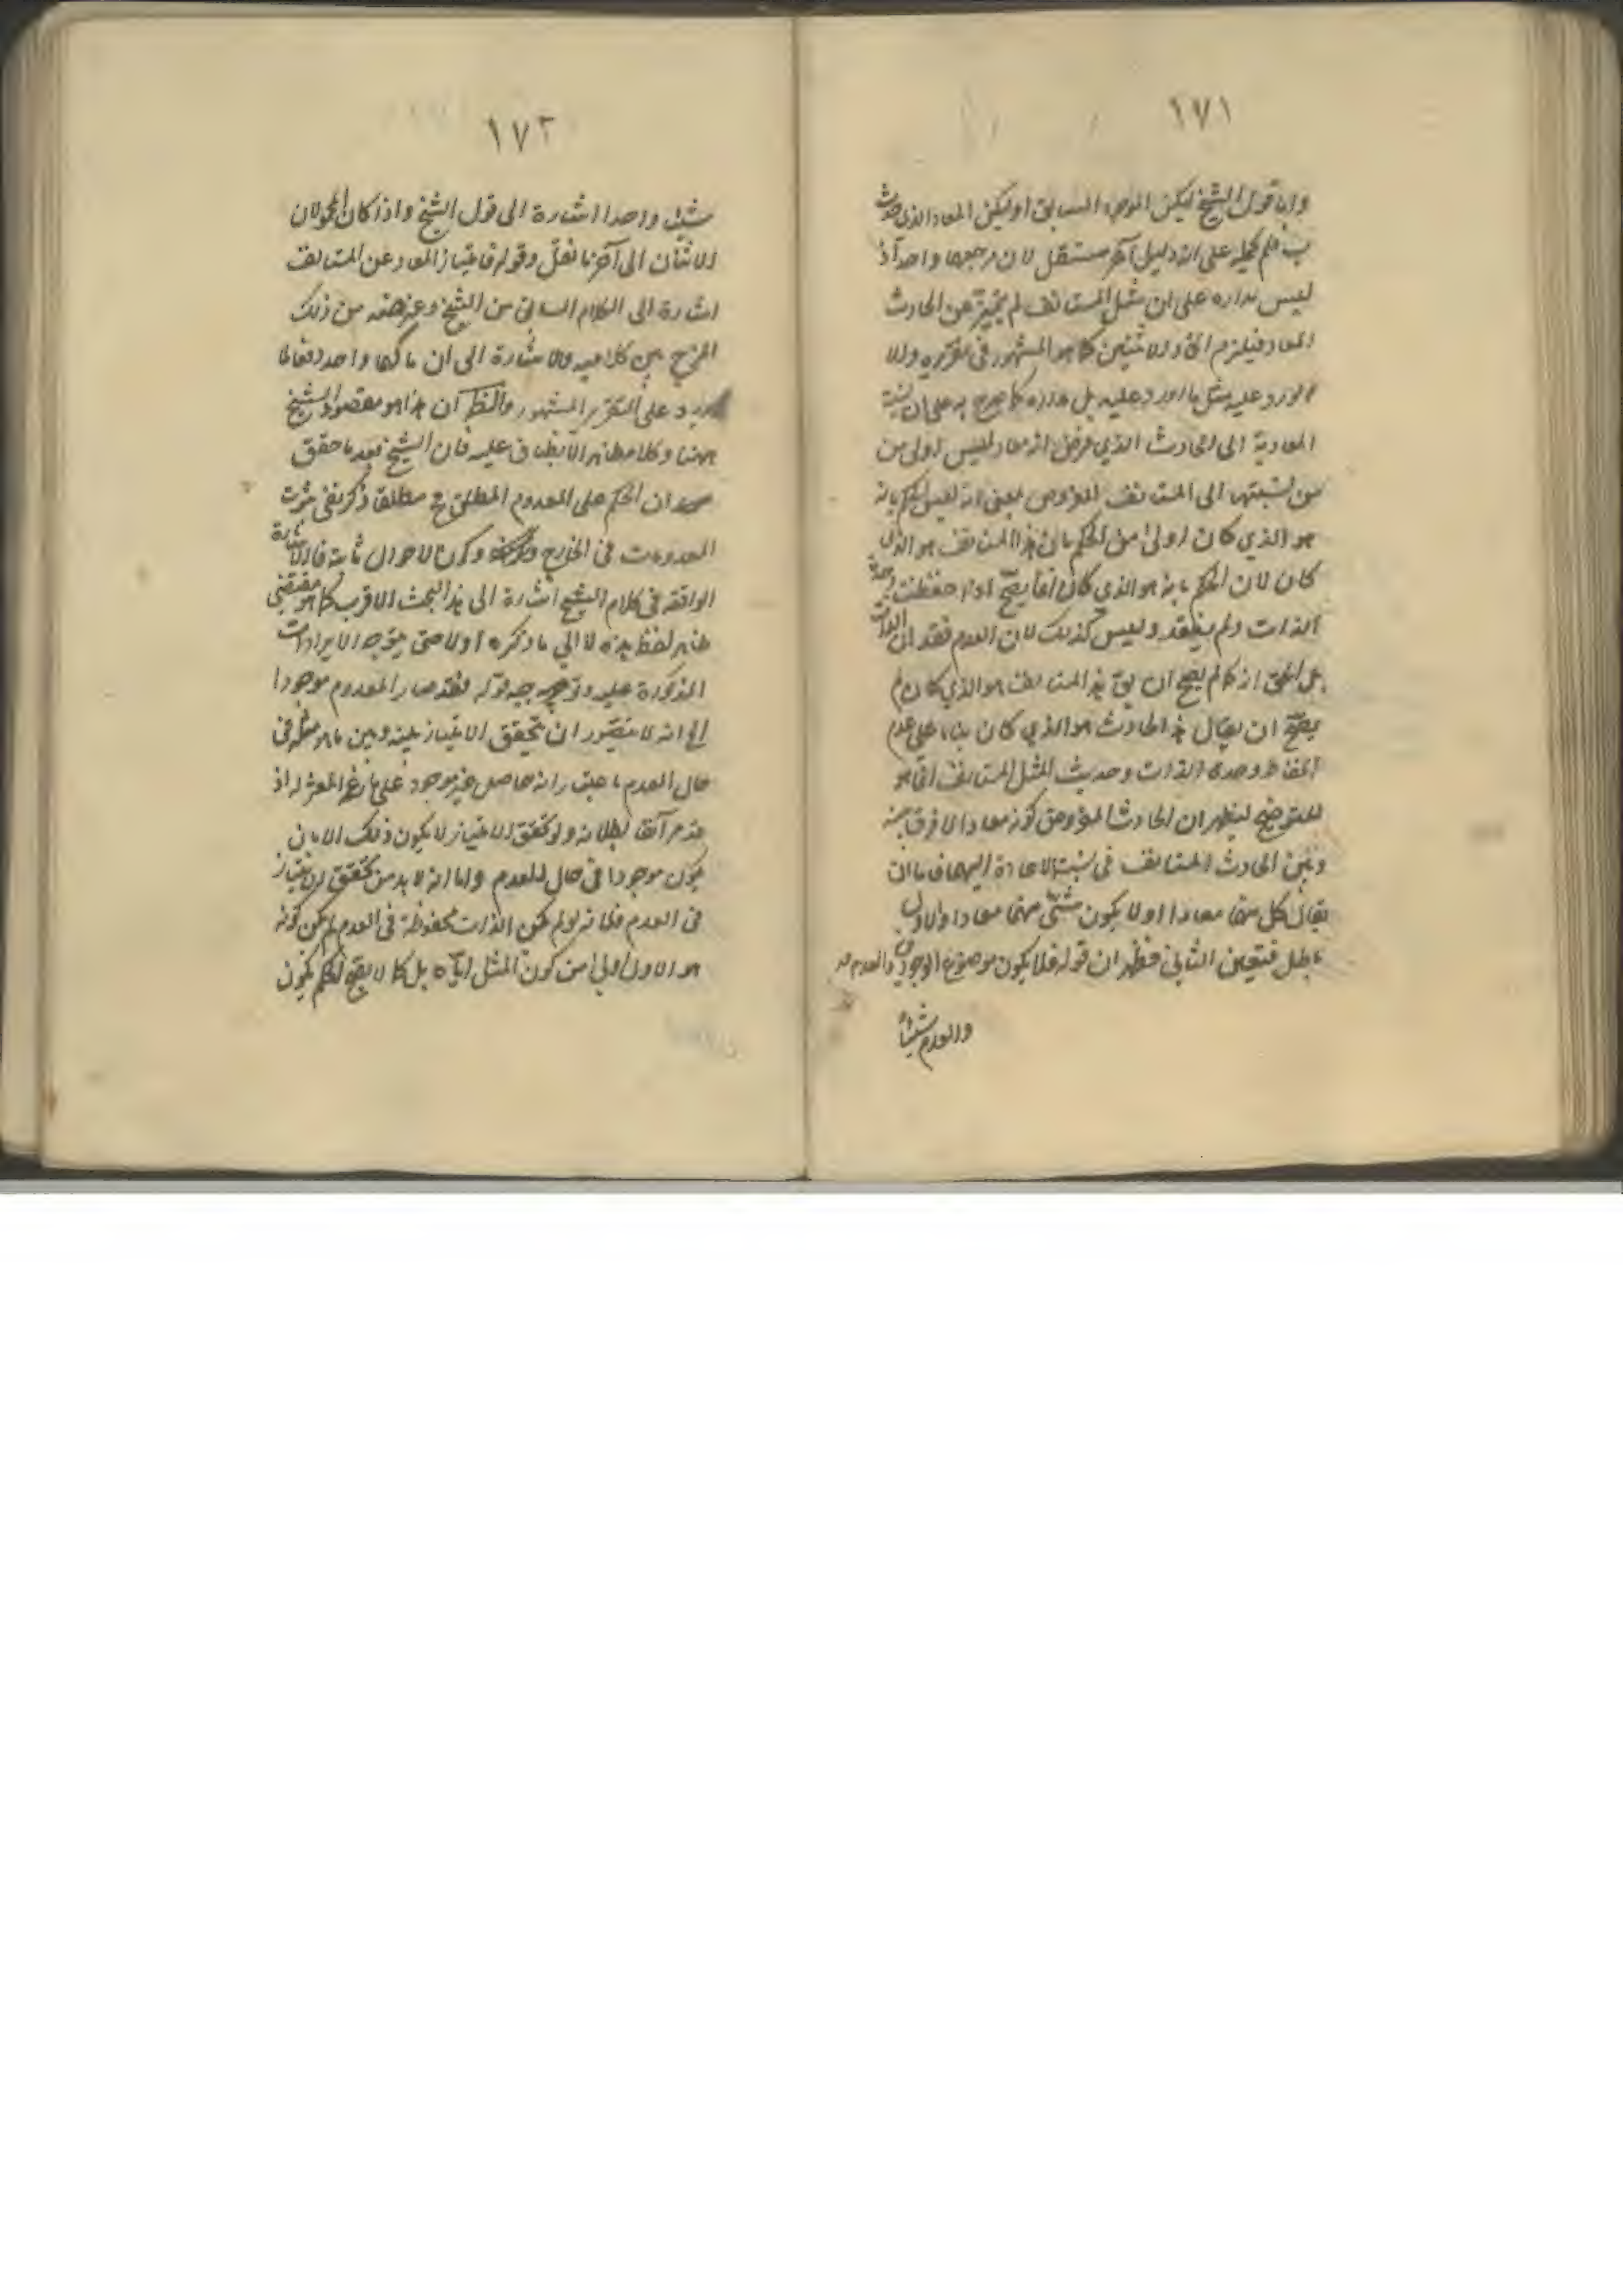 ١٧١
واما قول الشيخ ليكن الموجود السابق او ليكن المعاد الذي حدث
ب فلم يحمله على انه دليل آخر مستقل لان مرجعهما واحد اذ
ليس مداره على ان مثل المستانف لم يتميز عن الحادث
المعاد فيلزم اتحاد الاثنين كما هو المشهور في تقريره والا
لورد عليه مثل ما اورد عليه بل مداره كما صرح به على ان نسبة
المعادية الى الحادث الذي فرض انه معاد ليس اولى من
من نسبتها الى المستانف المفروض بمعنى انه ليس الحكم بانه
هو الذي كان اولى من الحكم بان هذا المستانف هو الذي
كان لان الحكم بانه هو الذي كان انما يصح اذا حفظت وحدة
الذات ولم يفقد وليس كذلك لان العدم فقدان الذات
بل الحق انه كما لم يصح ان يق هذا المستانف هو الذي كان لم
يصح ان يقال هذا الحادث هو الذي كان بناء على عدم
انحفاظ وحدة الذات وحديث المثل المستانف انما هو
للتوضيح ليظهر ان الحادث المفروض كونه معادا لا فرق بينه
وبين الحادث المستانف في نسبة الاعادة اليهما فاما ان
يقال كل منهما معادا او لا يكون شئ منهما معادا والاول
باطل فتعين الثاني فظهر ان قوله فلا يكون موضوع الوجودين والعدم
والعدم شيئا
١٧٢
شيئا واحدا اشارة الى قول الشيخ واذا كان المحمولان
الاثنان الى آخر ما نقل وقوله فامتياز المعاد عن المستانف
اشارة الى الكلام السابق من الشيخ وغرضه من ذلك
المزج بين كلاميه والاشارة الى ان مآلهما واحد دفعا لما
يورد على التقرير المشهور والظ ان هذا هو مقصود الشيخ
ههنا وكلامه ظاهر الانطباق عليه فان الشيخ بعد ما حقق
ان الحكم على المعدوم المطلق مح مطلقا ذكر نفي ثبوت
المعدومات في الخارج وكون الاحوال ثابتة فالاشارة
الواقعة في كلام الشيخ اشارة الى هذا البحث الاقرب كما هو مقتضى
ظاهر لفظ هذه لا الى ما ذكره اولا حتى يتوجه الايرادات
المذكورة عليه وتوجيه قوله فقد صار المعدوم موجودا
الخ انه لا يتصور ان يتحقق الامتياز بينه وبين ما هو مثله في
حال العدم باعتبار انه حاصل غير موجود على ما زعم المعتزلة اذ
قد مر آنفا بطلانه ولو تحقق الامتياز لا يكون ذلك الا بان
يكون موجودا في حال العدم واما انه لا بد من تحقق الامتياز
في العدم فلانه لو لم تكن الذات محفوظة في العدم لم يكن كونه
هو الاول اولى من كون المثل اياه بل كما لا يصح الحكم بكون